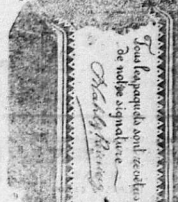 Tous les paquets sont revêtus
de notre signature —